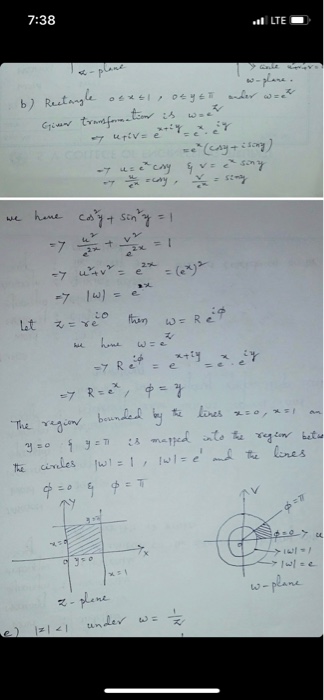 7:38
LTE
z-plane
w-plane.
b) Rectangle 0≤x≤1, 0≤y≤π under w=e^z
Given transformation is w=e^z
=> u+iv = e^{x+iy} = e^x · e^{iy}
= e^x (cosy + i siny)
=> u = e^x cosy & v = e^x siny
=> u/e^x = cosy, v/e^x = siny
we have cos²y + sin²y = 1
=> u²/e^{2x} + v²/e^{2x} = 1
=> u²+v² = e^{2x} = (e^x)²
=> |w| = e^x
Let z = re^{iθ} then w = Re^{iϕ}
we have w = e^z
=> Re^{iϕ} = e^{x+iy} = e^x · e^{iy}
=> R = e^x, ϕ = y
The region bounded by the lines x=0, x=1
y=0 & y=π is mapped into the region
the circles |w|=1, |w|=e' and the lines
ϕ=0 & ϕ=π
y
y=π
x=0
y=0
x
x=1
z-plane
V
ϕ=π
ϕ=0
u
|w|=1
|w|=e
w-plane
e) |z|<1 under w = 1/z